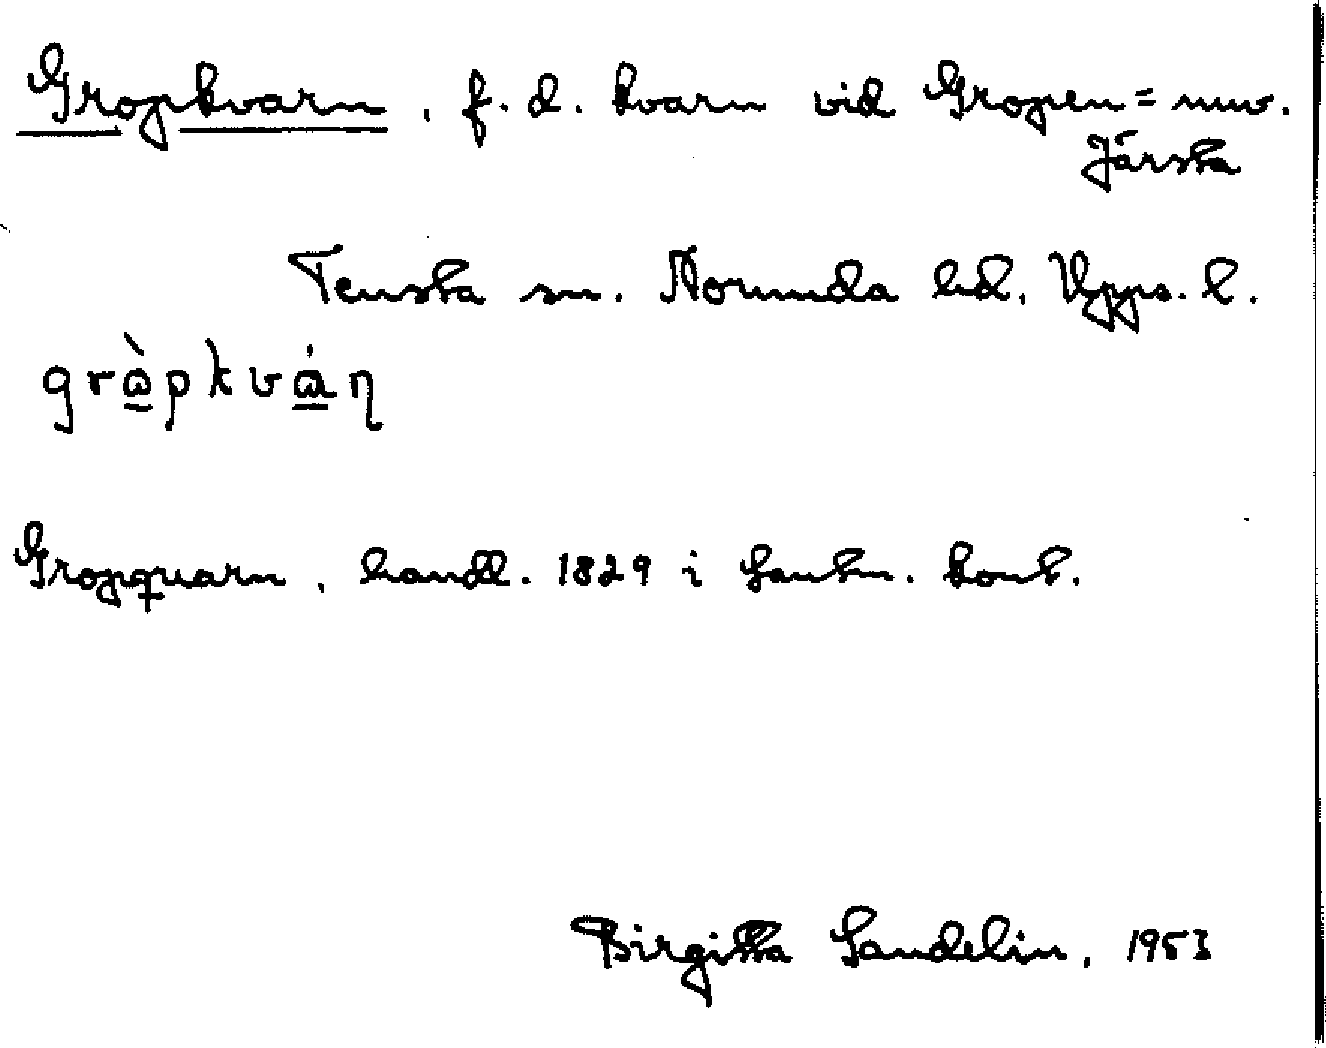 Gropkvarn, f. d. kvarn vid Gropen = nuv.
Järsta
Tensta sn. Norunda hd. Upps. l.
grὼpkvάη
Gropquarn, handl. 1829 i Lantm. kont.
Birgitta Sandelin, 1953